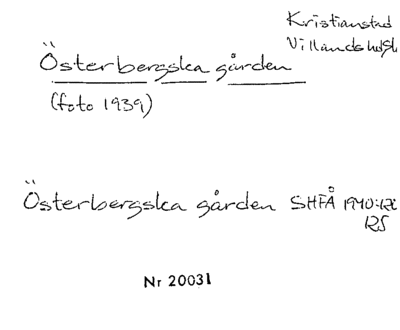 Kristianstad
Villands hd
Österbergska gården
(foto 1939)
Österbergska gården SHFÅ 1940:
RS
Nr 20031